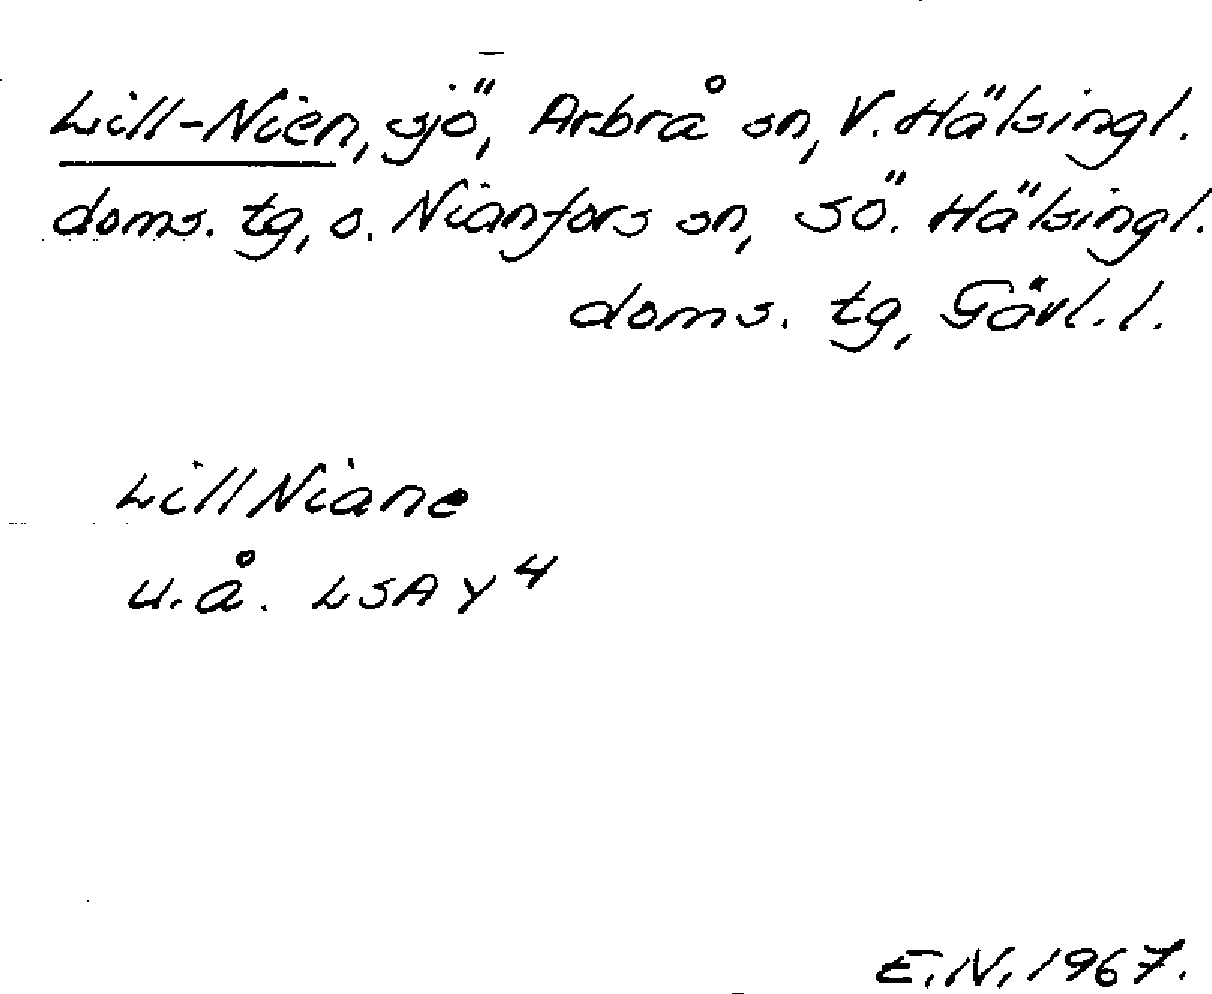 Lill-Nien, sjö, Arbrå sn, V. Hälsingl.
doms. tg, o. Nianfors sn, SÖ. Hälsingl.
doms. tg, Gävl. l.
Lill Niane
u.å. LSA Y 4
E.N. 1967.